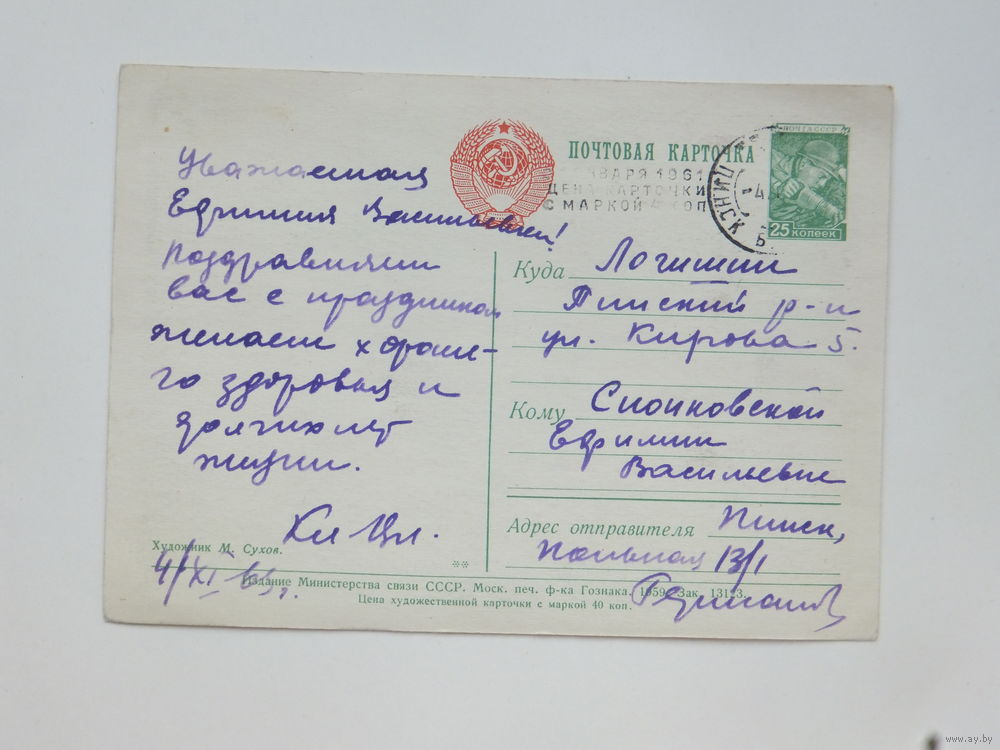 Уважаемая
Ефимия Васильевна!
Поздравляем
вас с праздником
желаем хороше-
го здоровья и
долгих лет
жизни.
4/XI
Художник М. Сухов.
ПОЧТОВАЯ КАРТОЧКА
ЯНВАРЯ 1961
ЦЕНА КАРТОЧКИ
С МАРКОЙ 4 КОП
ПОЧТА СССР
25 КОПЕЕК
ПИНСК
Куда Логишин
Пинский р-н
ул. Кирова 5.
Кому
Ефимии
Васильевне
Адрес отправителя Пинск,
13/1
Издание Министерства связи СССР. Моск. печ. ф-ка Гознака. 1959. Зак. 13123.
Цена художественной карточки с маркой 40 коп.
www.ay.by